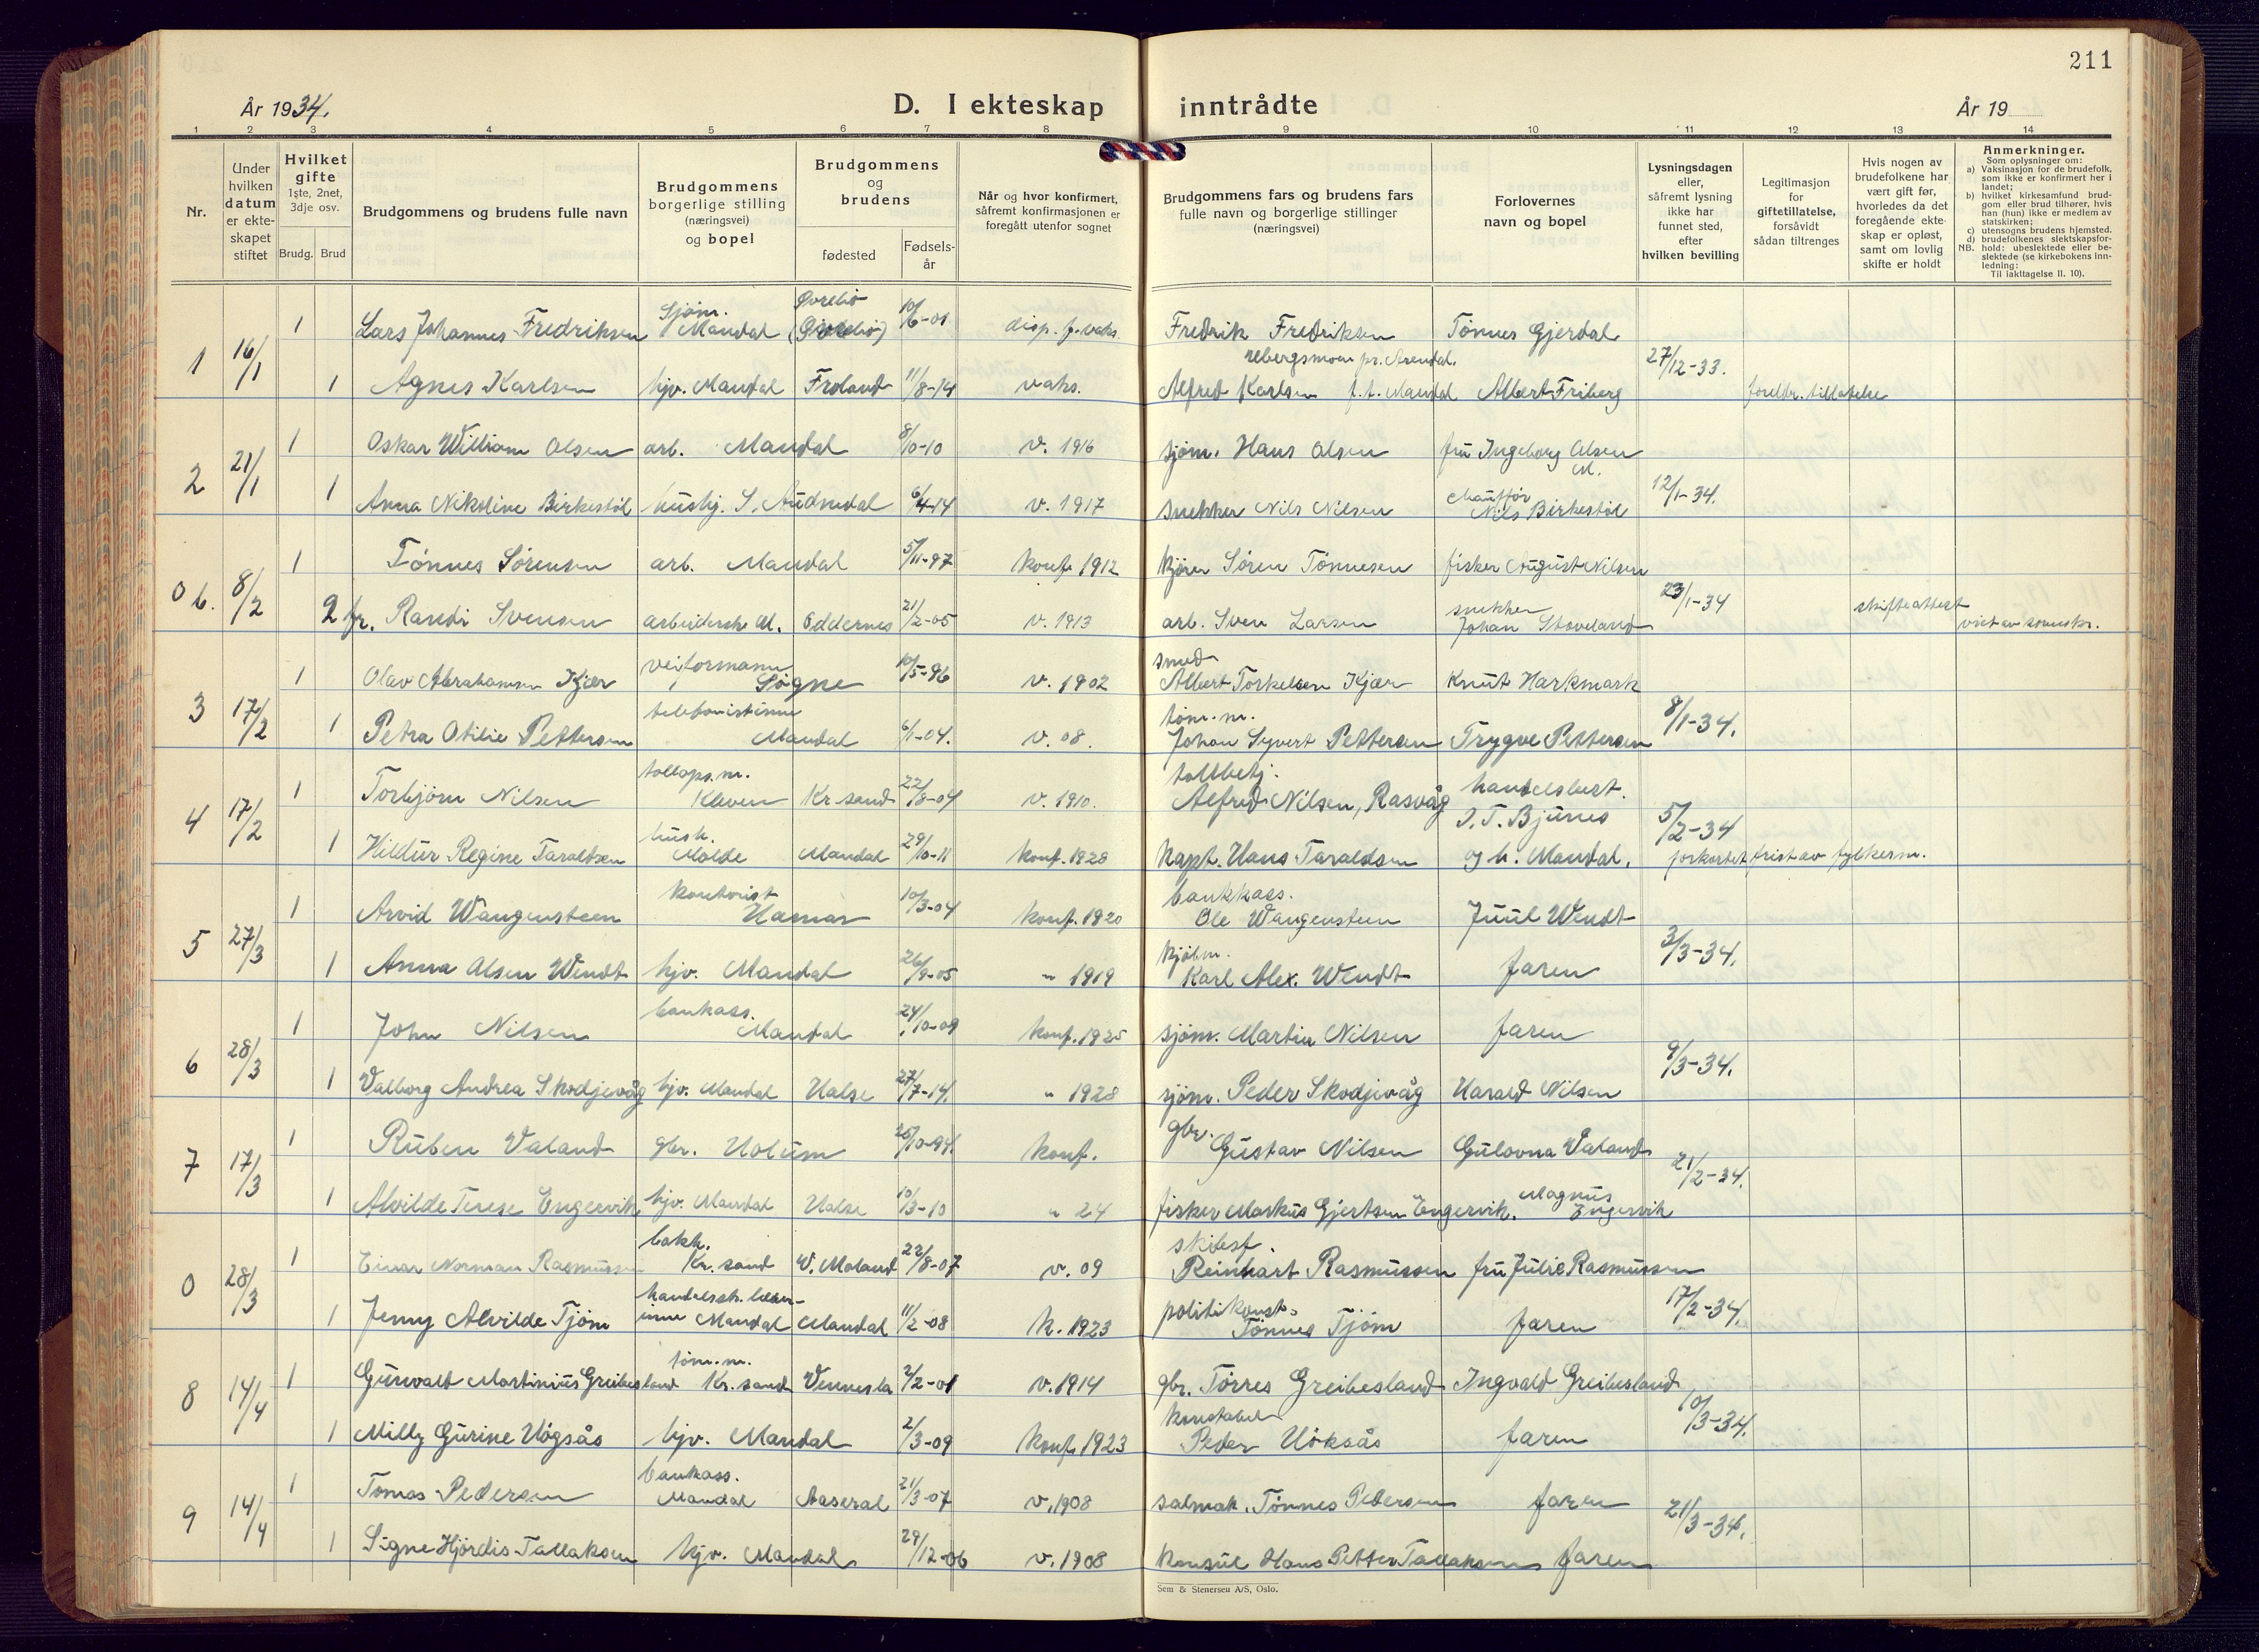 211
År 1934.
D. I ekteskap inntrådte
År 19
1 2 3 4 5 6 7 8 9 10 11 12 13 14
Nr.
Under hvilken datum er ekteskapet stiftet
Hvilket gifte 1ste, 2net, 3dje osv.
Brudg. Brud
Brudgommens og brudens fulle navn
Brudgommens borgerlige stilling (næringsvei) og bopel
Brudgommens og brudens
fødested
Fødselsår
Når og hvor konfirmert, såfremt konfirmasjonen er foregått utenfor sognet
Brudgommens fars og brudens fars fulle navn og borgerlige stillinger (næringsvei)
Forlovernes navn og bopel
Lysningsdagen eller, såfremt lysning ikke har funnet sted, efter hvilken bevilling
Legitimasjon for giftetillatelse, forsåvidt sådan tiltrenges
Hvis nogen av brudefolkene har vært gift før, hvorledes da det foregående ekteskap er opløst, samt om lovlig skifte er holdt
Anmerkninger.
Som oplysninger om:
a) Vaksinasjon for de brudefolk, som ikke er konfirmert her i landet;
b) hvilket kirkesamfund brudgom eller brud tilhører, hvis han (hun) ikke er medlem av statskirken;
c) utensogns brudens hjemsted.
d) brudefolkenes slektskapsforhold: ubeslektede eller beslektede (se kirkebokens innledning:
NB. Til iakttagelse II. 10).
1 16/1 1 Lars Johannes Fredriksen Sjøm. Mandal Øvrebø (Øvrebø) 10/6-01 disp. f. vaks. Fredrik Fredriksen Tönnes Gjerdal 27/12-33.
1 Agnes Karlsen hjv. Mandal Froland 11/8-14 vaks. Alfred Karlsen f.t. Mandal pr. Arendal. Albert Friberg foreldr. tillatelse
2 21/1 1 Oskar William Olsen arb. Mandal 8/10-10 v. 1916 sjøm. Hans Olsen fru Ingeborg Olsen M. 12/1-34.
1 Anna Nikoline Birkestöl hushj. S. Audnedal 6/4-14 v. 1917 snekker Nils Nilsen Nils Birkestöl
0 b. 8/2 1 Tönnes Sörensen arb. Mandal 5/11-97 konf. 1912 kjörer Sören Tönnesen fisker August Nilsen 23/1-34
2 fr. Randi Svensen arbeiderske M. Oddernes 21/2-05 v. 1913 arb. Sven Larsen snekker Johan Stoveland skifteattest
3 17/2 1 Olav Abrahamsen Kjær veiformann Søgne 10/5-96 v. 1902 smed Albert Torkelsen Kjær Knut Harkmark 8/1-34.
1 Petra Otilie Pettersen telefonistinne Mandal 6/1-04. v. 08. töm.m. Johan Syvert Pettersen Trygve Pettersen
4 17/2 1 Torbjörn Nilsen tollops.m. Kleven Kr.sand 22/8-04 v. 1910. tollbetj. Alfred Nilsen, Rasvåg handelsbest. J. T. Bjünes 5/2-34
1 Hildur Regine Taraldsen hush. Molde Mandal 29/10-11 konf. 1928 kapt. Hans Taraldsen og h. Mandal. forkortet frist av fylkesm.
5 27/3 1 Arvid Wangensteen kontorist Hamar 10/3-04 konf. 1920 bankkass. Ole Wangensteen Juul Wendt 3/3-34.
1 Anna Olsen Wendt hjv. Mandal 26/9-05 " 1919 kjöbm. Karl Alex. Wendt faren
6 28/3 1 John Nilsen bankass. Mandal 24/10-09 konf. 1925 sjöm. Martin Nilsen faren 9/3-34.
1 Valborg Andrea Skodjevåg hjv. Mandal Halse 27/7-14. " 1928 sjöm. Peder Skodjevåg Harald Nilsen
7 17/3 1 Ruben Valand gbr. Holum 25/10-94. konf. gbr. Gustav Nilsen Gulovna Valand 21/2-34.
1 Alvilde Terese Engervik hjv. Mandal Halse 10/3-10 " 24 fisker Markus Gjertsen Engervik. Magnus Engervik
0 28/3 1 Einar Norman Rasmussen bakk. Kr. sand V. Moland 22/8-07 v. 09 skibsf. Reinhart Rasmussen fru Julie Rasmussen 17/2-34.
1 Jenny Alvilde Tjöm handelssk. lærerinne Mandal Mandal 11/2-08 k. 1923 politikonst. Tönnes Tjöm faren
8 14/4 1 Gunvald Martinius Greibesland töm.m. Kr. sand Vennesla 2/2-01 v. 1914 gbr. Törres Greibesland Ingvald Greibesland 10/3-34.
1 Milly Gurine Högsås hjv. Mandal 2/3-09 konf. 1923 konstabel Peder Höksås faren
9 14/4 1 Tomas Pedersen bankass. Mandal Aaseral 21/3-07 v. 1908 salmak. Tönnes Pedersen faren 21/3-34.
1 Signe Hjördis Tallaksen hjv. Mandal 29/12-06 v. 1908 konsul Hans Petter Tallaksen faren
Sem & Stenersen A/S, Oslo.